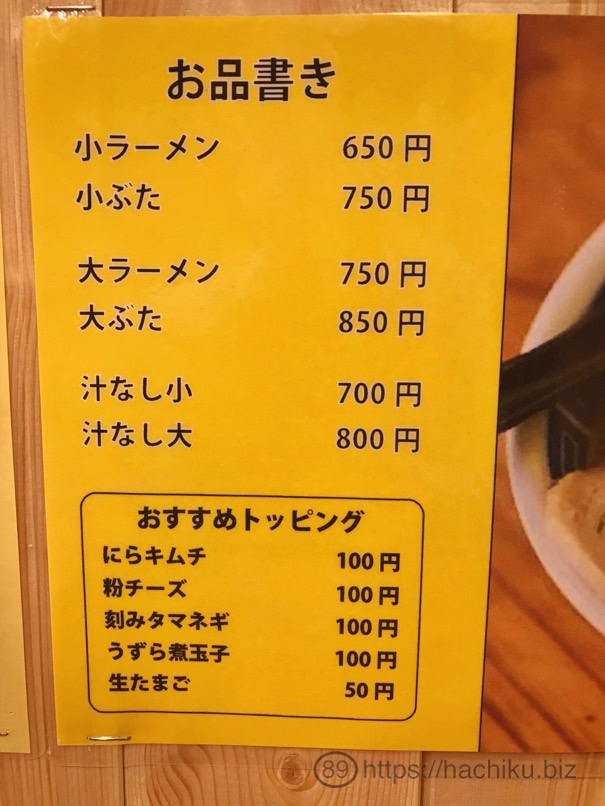 お品書き
小ラーメン 650 円
小ぶた 750 円
大ラーメン 750 円
大ぶた 850 円
汁なし小 700 円
汁なし大 800 円
おすすめトッピング
にらキムチ 100 円
粉チーズ 100 円
刻みタマネギ 100 円
うずら煮玉子 100 円
生たまご 50 円
89 https://hachiku.biz